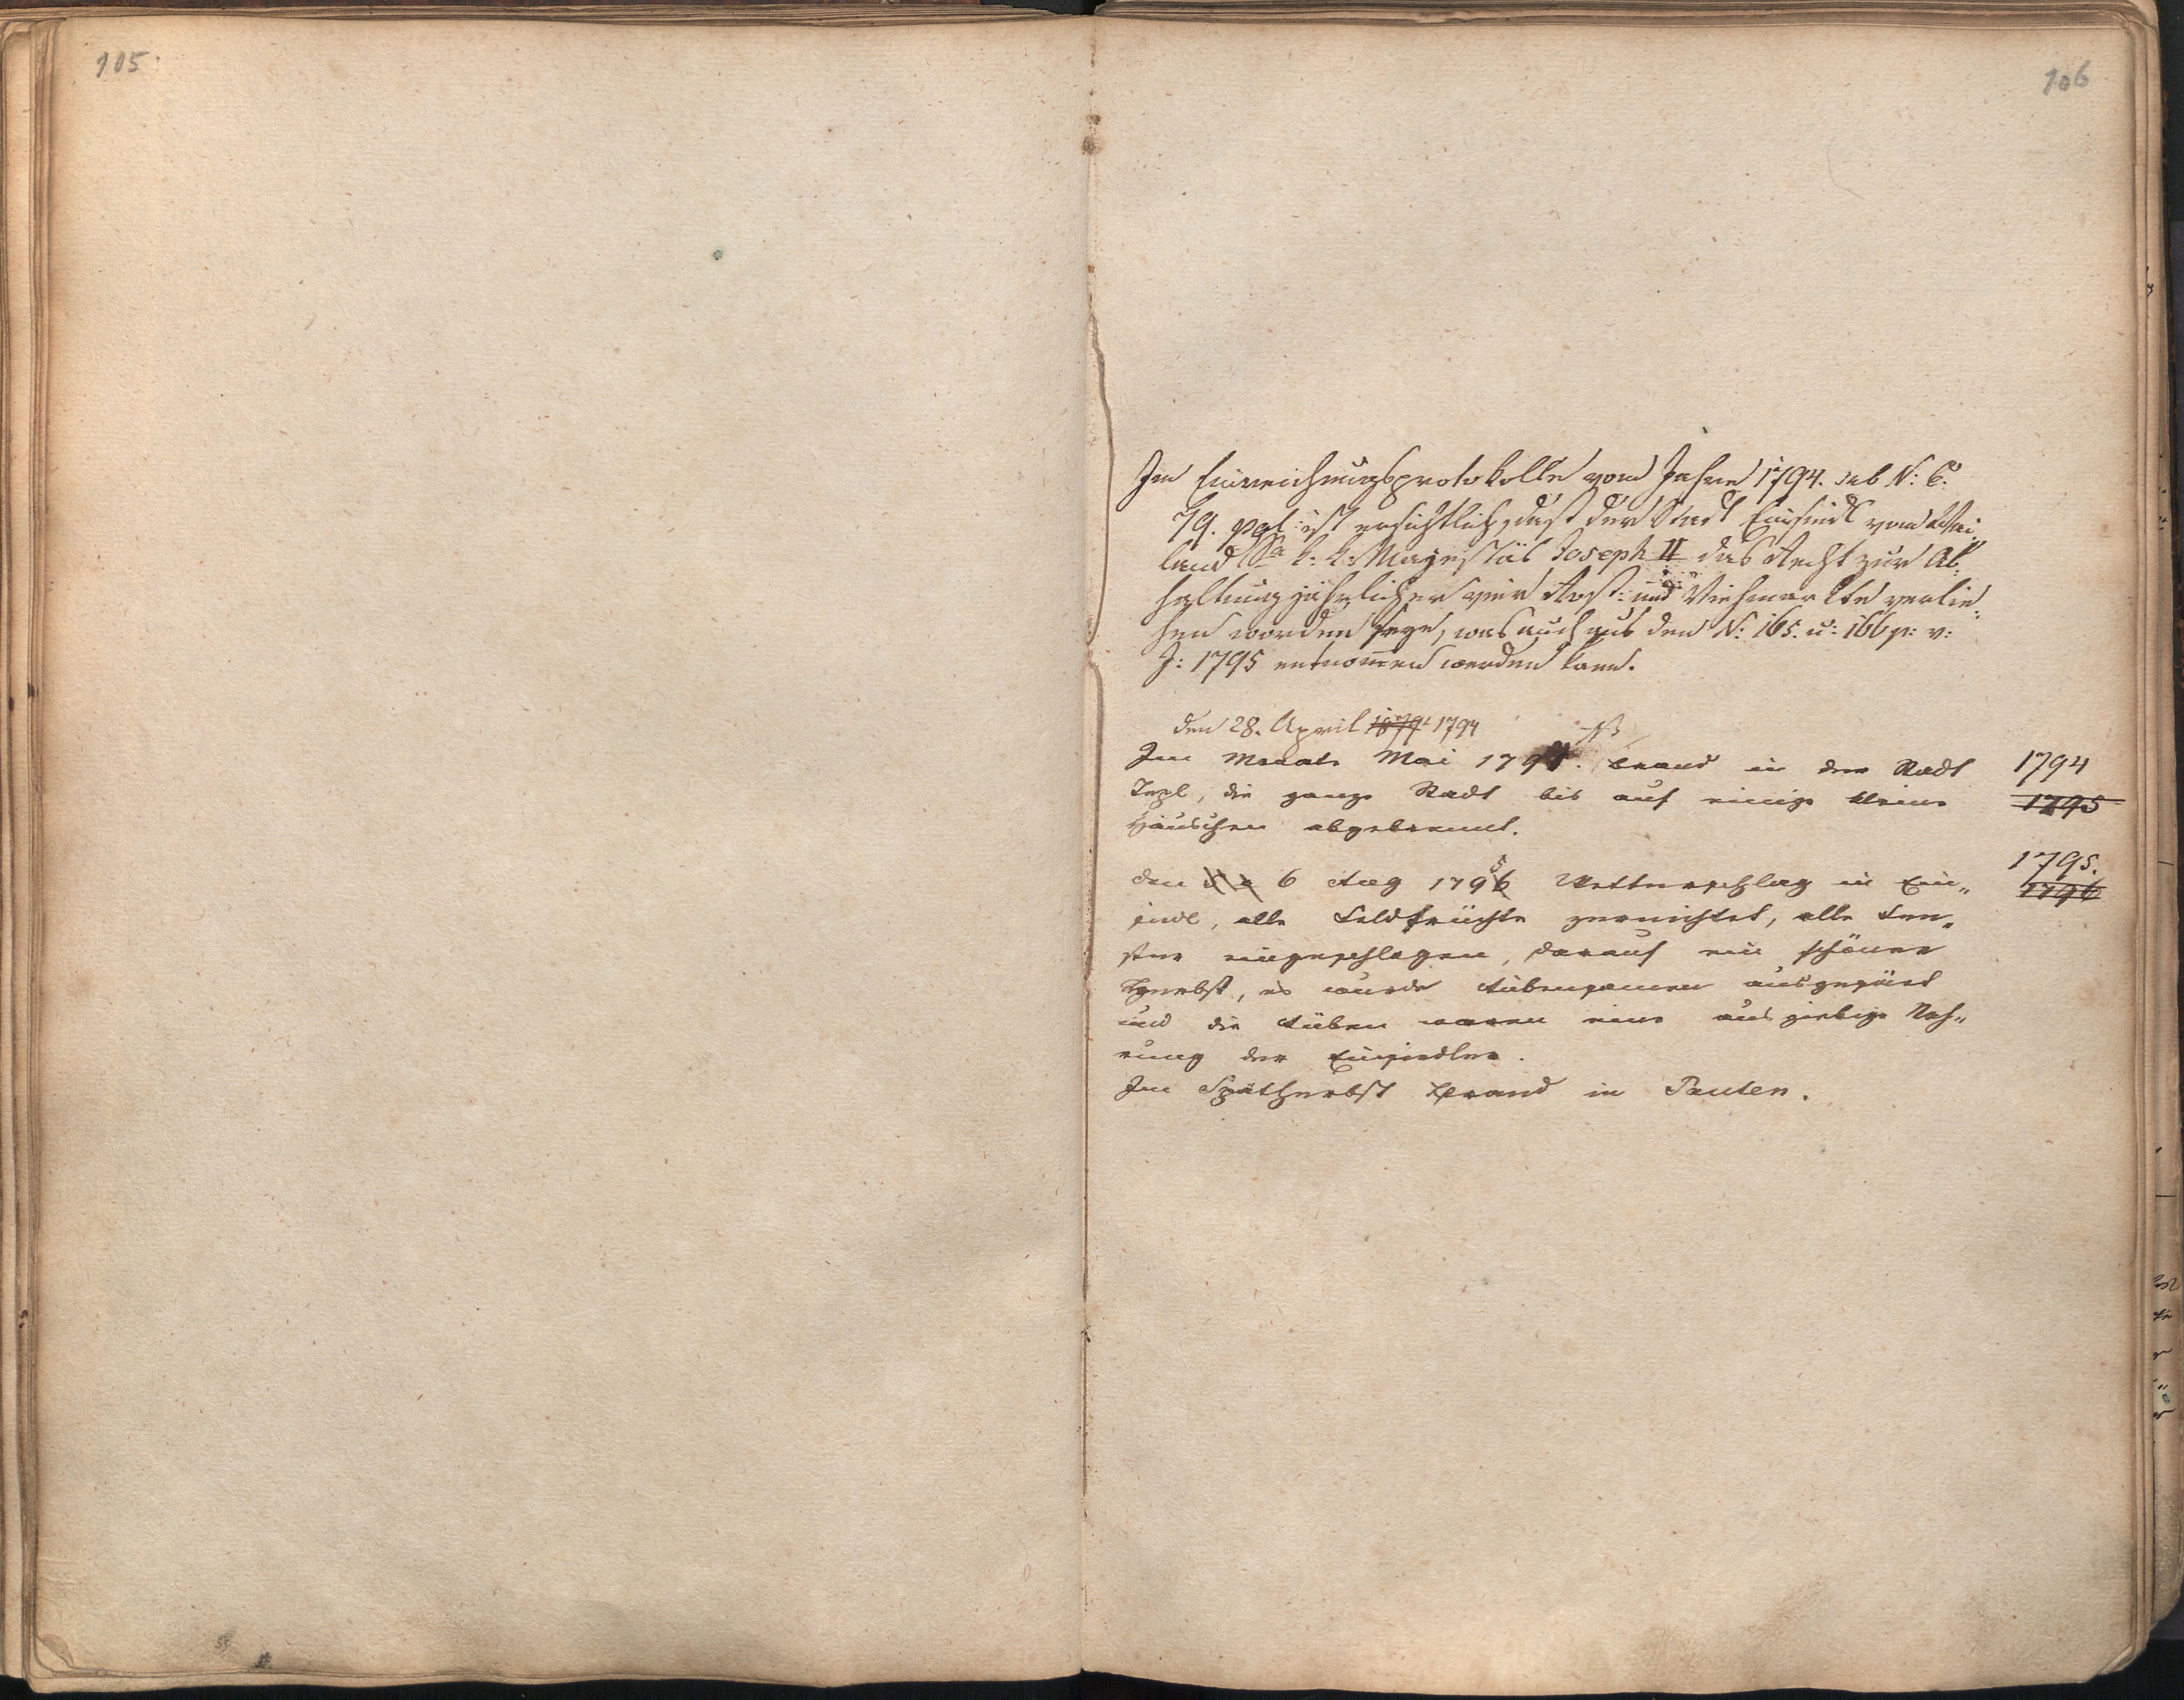 105.
106
Im Einreichungsprotokolle vom Jahre 1794. sub N: E.
79. pol: ist ersichtlich, daß der Stadt Einsiedl von Wei-
land Sr. k: k: Majestät Joseph II das Recht zur Ab-
haltung jährlicher vier Roß- und Viehmarkte verlie-
hen worden seye, was auch aus den N: 165. u: 166 p: v:
J: 1795 entnom̄en werden kann.
den 28. April 1794
Im Monate Mai 179 . brand in der Stadt
1794
Tepl, die ganze Stadt bis auf einige kleine
1795
Häuschen abgebrennt.
1795.
den 6 Aug 1795 Wetterschlag in Ein„
1796
siedl, alle Feldfrüchte zernichtet, alle Fen„
ster eingeschlagen, darauf ein schöner
Herbst, es wurde Rübensamen ausgesäet
und die Rüben waren eine ausgiebige Nah„
rung der Einsiedler.
Im Spätherbst Brand in Pauten.